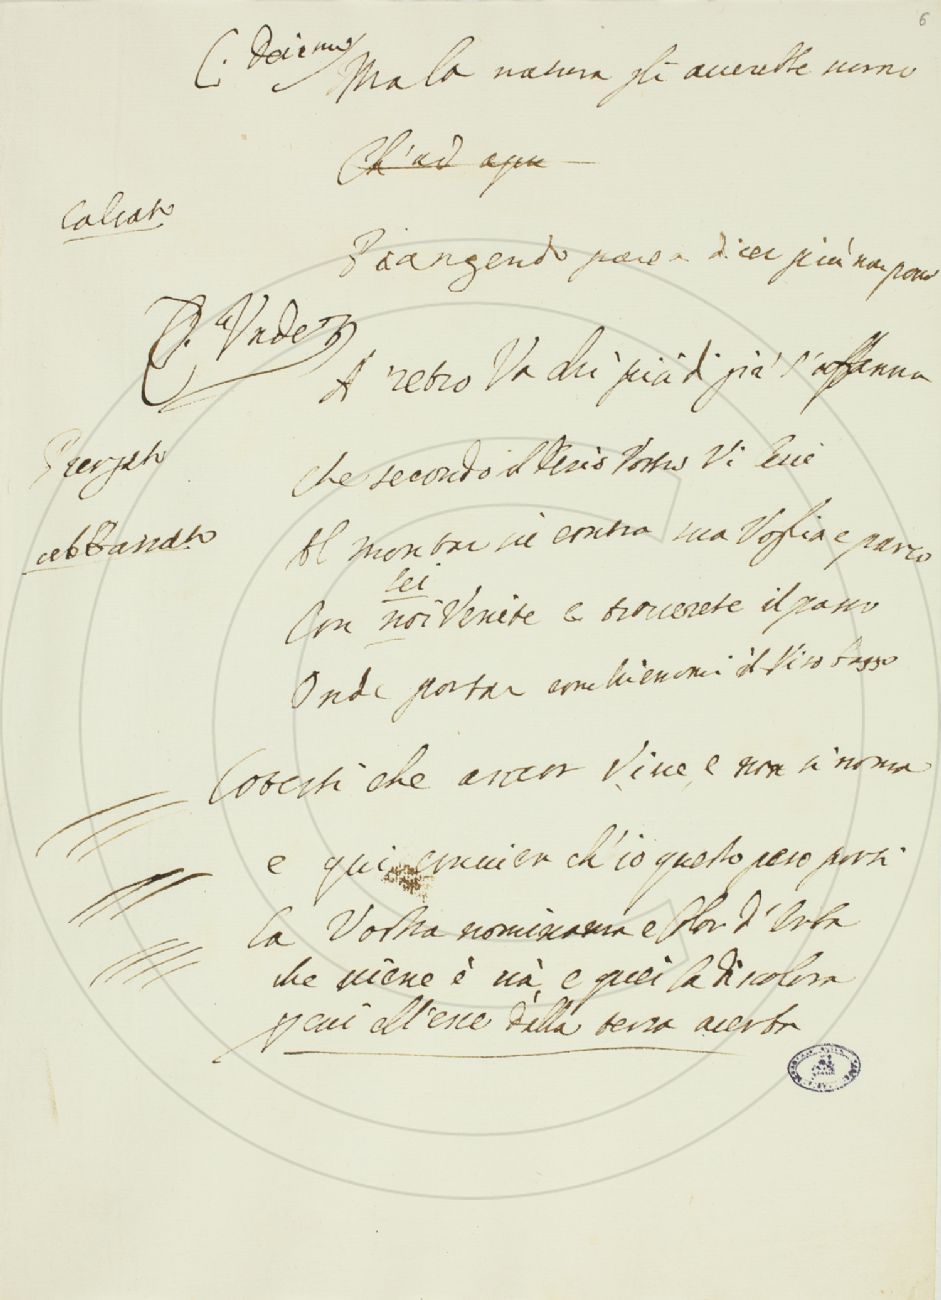 6
C. Decimo Ma la natura gli auerebbe scorno
Ch'ad apu
Calcato
Piangendo parea dicer più non posso
C. Unde
A retro Va chi più di già s'affanna
Piegato che secondo il Disio Vostro Vi lievi
abbassato Al montar sù contra sua Voglia e parco
lei
Con noi Venite e trouerete il passo
Onde portar conuienmi il Viso basso
Cotesti che ancor Viue e non si noma
e qui conuien ch'io questo peso porti
La Vostra nominanza e color d'Erba
che uiene è uà, e quei la discolora
per cui ell'esce dalla terra acerba